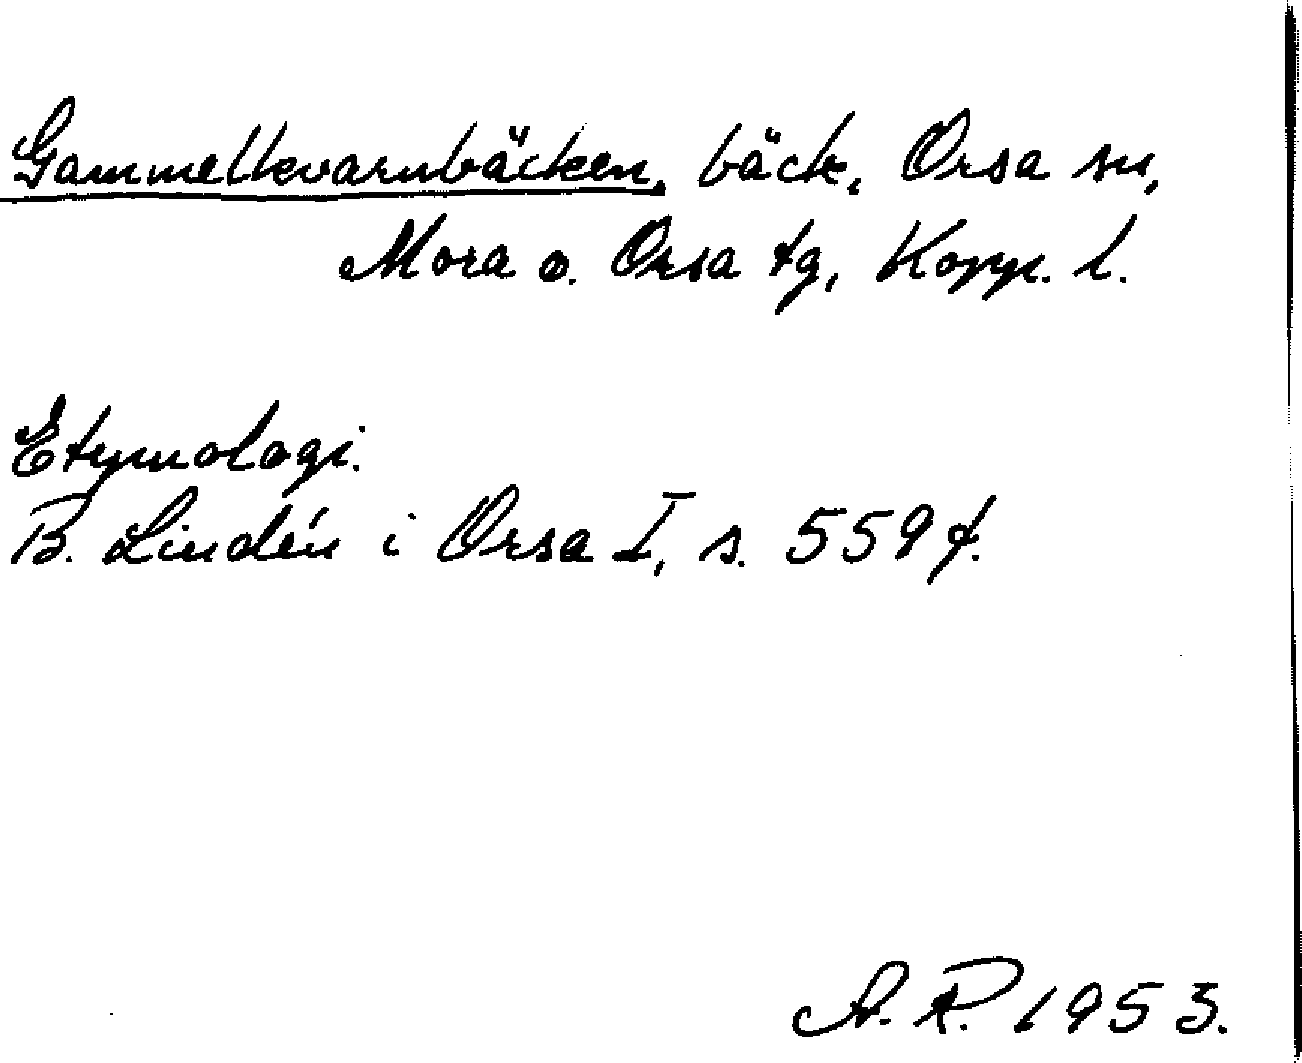 Gammelkvarnbäcken, bäck, Orsa sn,
Mora o. Orsa tg, Kopp. l.
Etymologi.
B. Lindén i Orsa I, s. 559 f.
A. R. 1953.